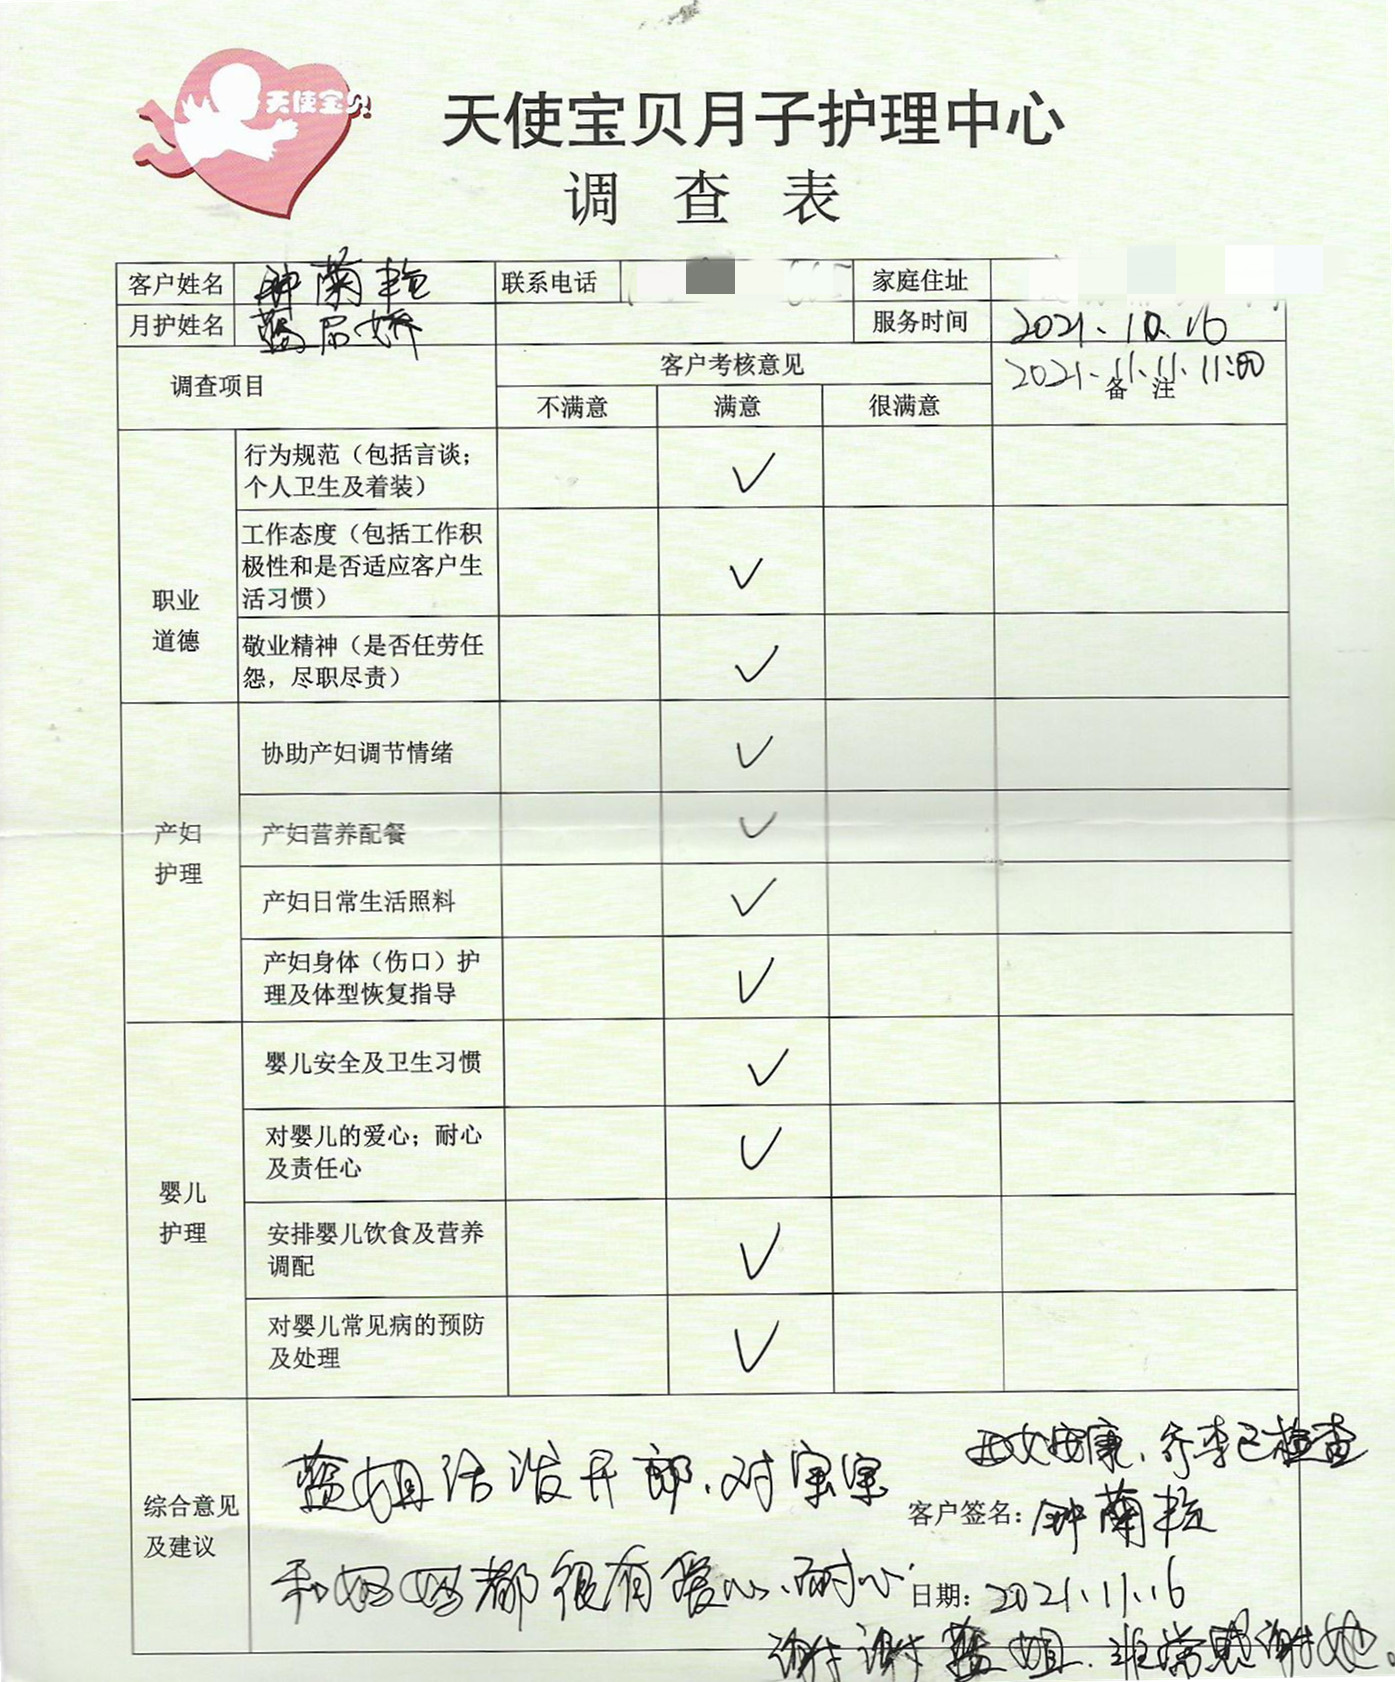 天使宝贝
天使宝贝月子护理中心
调查表
客户姓名 钟菊艳 联系电话 家庭住址
月护姓名 蓝 娇 服务时间 2021.10.16
2021.11.11. 11:00
调查项目 客户考核意见 备注
不满意 满意 很满意
职业
道德
行为规范（包括言谈；
个人卫生及着装） ✓
工作态度（包括工作积
极性和是否适应客户生
活习惯） ✓
敬业精神（是否任劳任
怨，尽职尽责） ✓
产妇
护理
协助产妇调节情绪 ✓
产妇营养配餐 ✓
产妇日常生活照料 ✓
产妇身体（伤口）护
理及体型恢复指导 ✓
婴儿
护理
婴儿安全及卫生习惯 ✓
对婴儿的爱心；耐心
及责任心 ✓
安排婴儿饮食及营养
调配 ✓
对婴儿常见病的预防
及处理 ✓
综合意见
及建议
蓝姐活泼开朗，对宝宝
和妈妈都很有爱心、耐心.
母女安康，行李已检查
客户签名：钟菊艳
日期：2021.11.16
谢谢蓝姐.非常感谢她。